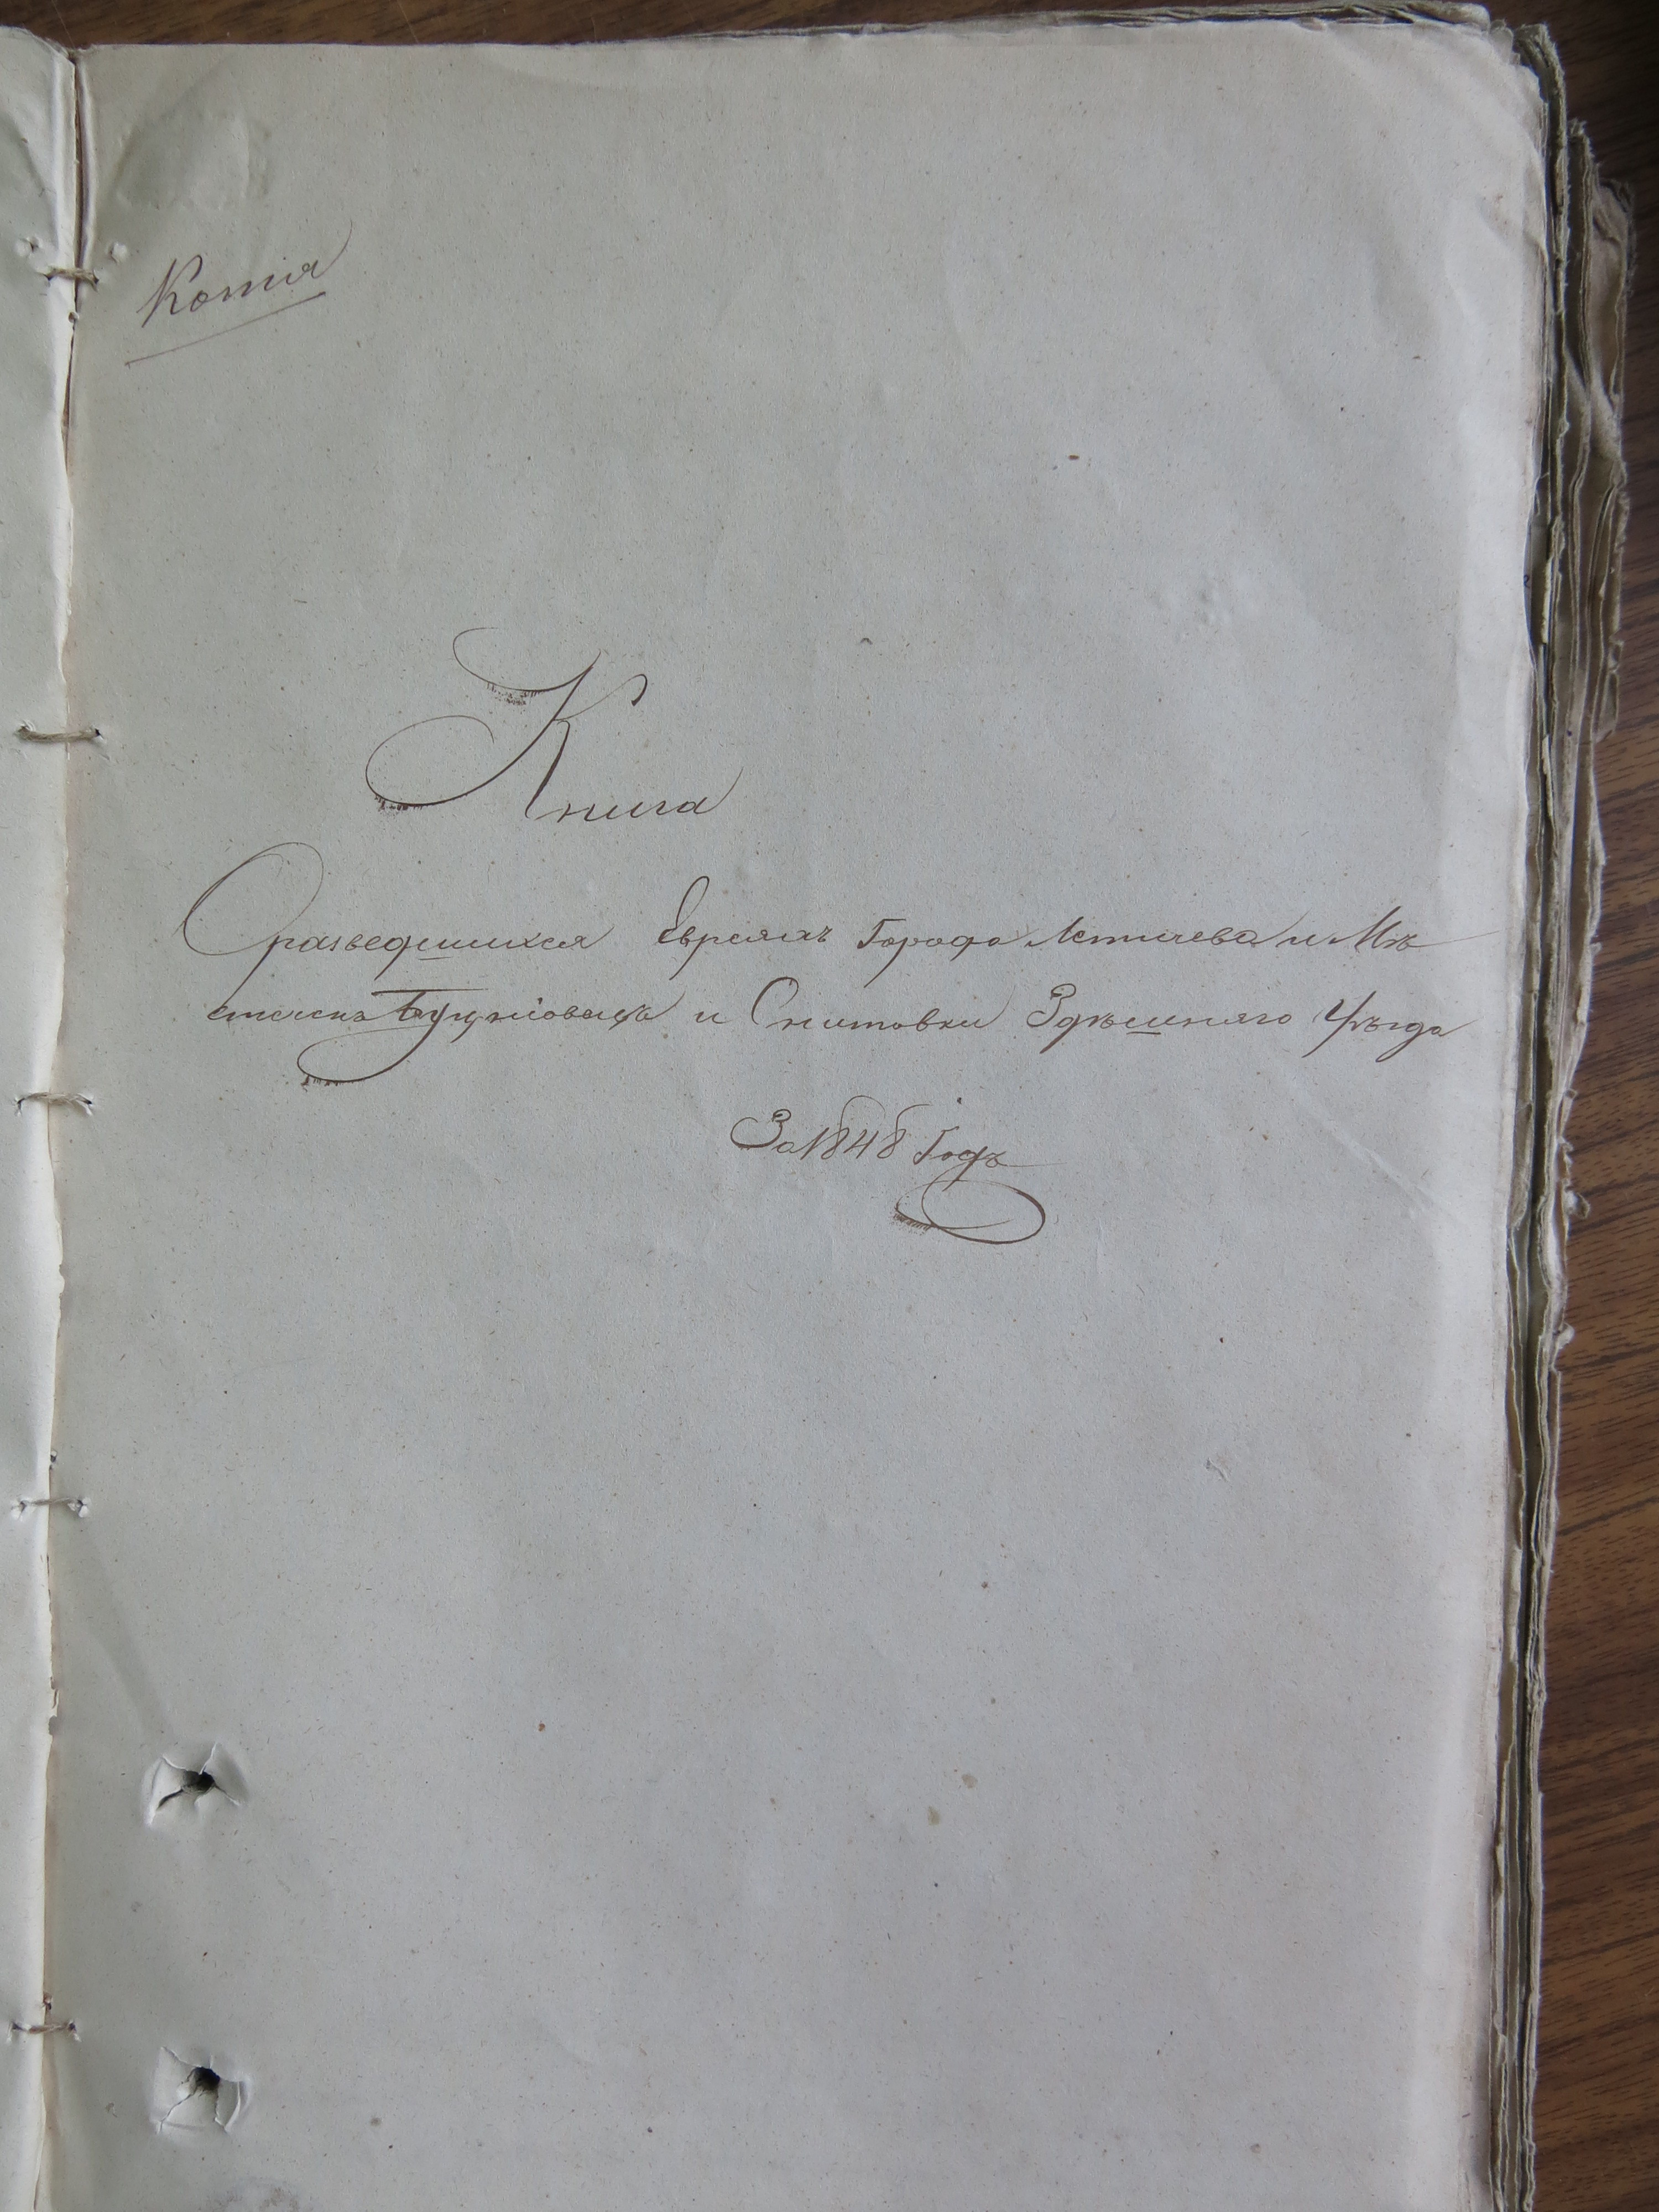 Копія
Книга
О разведшихся Евреяхъ Города Летичева и Мѣ
стечкъ Буцніовацъ и Снитовки Здѣшняго Уѣзда
За 1848 Годъ